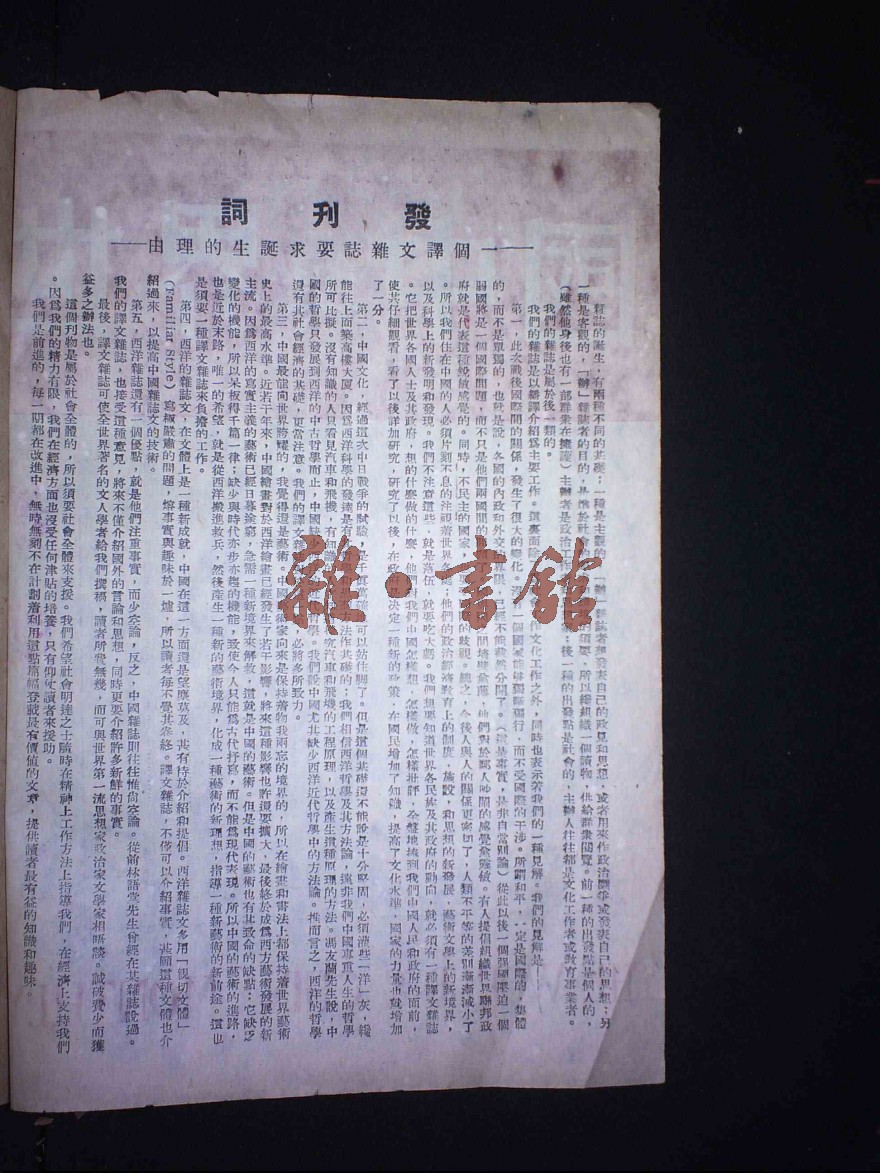 發刊詞
——一個譯文雜誌要求誕生的理由——
雜誌的誕生，有兩種不同的基礎；一種是主觀的，「辦」雜誌者想發表自己的政見和思想，或者用來作政治鬭爭或發表自己的思想；另
一種是客觀的，「辦」雜誌者的目的，是應於社會的須要，所以纔組織一個讀物，供給羣衆閱覽。前一種的出發點是個人的，
（雖然他身後也有一部羣衆在擁護）主辦者是政治工作；後一種的出發點是社會的，主辦人往往都是文化工作者或教育事業者。
我們的雜誌是屬於後一類的。
我們的雜誌是以繙譯介紹爲主要工作。這裏面除文化工作之外，同時也表示著我們的一種見解。我們的見解是——
第一，此次戰後國際間的關係，發生了很大的變化。沒有一個國家能够獨斷獨行，而不受國際的干涉。所謂和平，一定是國際的，集體
的，而不是單獨的，也就是說，各國的內政和外交經不能截然分開了。（這是事實，是非自當別論）從此以後一個強國壓迫一個
弱國將是一個國際問題，而不只是他們兩國間的間牆壁愈薄，他們對於鄰人吵鬧的感覺愈銳敏。有人提倡組織世界聯邦政
府就是代表這種銳敏感覺的。同時，不民主的國家的歧視。總之，今後人與人的關係更密切了，人類不平等的差別漸漸減小了
。所以我們住在中國的人必須片刻不息的注視着世界各地；他們的政治經濟教育上的制度，施設，和思想的新發展，藝術文學上的新境界，
以及科學上的新發明和發現。我們不注意這些，就是落伍，就要吃大虧。我們想要知道世界各民族及其政府的動向，就必須有一種譯文雜誌
。它把世界各國人士及其政府，想的什麼做的什麼，他們對我們中國怎樣想，怎樣做，怎樣批評，全盤地搬到我們中國人民和政府的面前，
使其仔細觀看，看了以後詳加研究，研究了以後，在政府再決定一種新的政策，在國民增加了知識，提高了文化水準，國家的力量也就增加
了一分。
第二，中國文化，經過這次中日戰爭的試驗，是千眞萬確的可以站住脚了。但是這個基礎還不能說是十分堅固，必須灌些「洋」灰，纔
能往上面築高樓大廈。因爲西洋科學的發達是有方法作基礎的；我們相信西洋哲學及其方法論，遠非我們中國專重人生的哲學
所可比擬。沒有知識的人只看見汽車和飛機，有知識研究汽車和飛機的工程原理，以及產生這種原理的方法。馮友蘭先生說，中
國的哲學只發展到西洋的中古哲學而止，中國缺少近代哲學。我們說中國尤其缺少西洋近代哲學中的方法論。推而言之，西洋的哲學
還有其社會經濟的基礎，更當注意。我們的譯文雜誌，必將多所致力。
第三，中國最能向世界誇耀的，我覺得還是藝術。中國藝術家向來是保持着物我兩忘的境界的，所以在繪畫和書法上都保持着世界藝術
史上的最高水準。近若干年來，中國繪畫對於西洋繪畫已經發生了若干影響，將來這種影響也許還要擴大，最後終於成爲西方藝術發展的新
主流。因爲西洋的寫實主義的藝術已經日暮途窮，急需一種新境界來解救，這就是中國的藝術。但是中國的藝術也有其致命的缺點：它缺乏
變化的機能，所以呆板得千篇一律；缺少與時代亦步亦趨的機能，致使今人只能爲古代抒寫，而不能爲現代表現。所以中國的藝術的進路，
也是近於末路，唯一的希望，就是從西洋搬進救兵，然後產生一種新的藝術境界，化成一種藝術的新理想，指導一種新藝術的新前途。這也
是須要一種譯文雜誌來負擔的工作。
第四，西洋的雜誌文，在文體上是一種新成就，中國在這一方面還是望塵莫及，其有待於介紹和提倡。西洋雜誌文多用「親切文體」
（Familiar Style）寫極嚴肅的問題，熔事實與趣味於一爐，所以讀者每不覺其卷終。譯文雜誌，不僅可以介紹事實，其願這種文體也介
紹過來，以提高中國雜誌文的技術。
第五，西洋雜誌還有一個優點，就是他們注重事實，而少空論，反之，中國雜誌則往往惟尙空論。從前林語堂先生曾經在其雜誌說過。
我們的譯文雜誌，也接受這種意見，將來不僅介紹國外的言論和思想，同時更要介紹許多新鮮的事實。
最後，譯文雜誌可使全世界著名的文人學者給我們撰稿，讀者所費無幾，而可與世界第一流思想家政治家文學家相晤談。誠破費少而獲
益多之辦法也。
這個刊物是屬於社會全體的，所以須要社會全體來支援。我們希望社會明達之士隨時在精神上工作方法上指導我們，在經濟上支持我們
。因爲我們的精力有限，我們在經濟方面也沒受任何津貼的培養，只有仰仗讀者來援助。
我們是前進的，每一期都在改進中，無時無刻不在計劃着利用這點篇幅登載最有價值的文章，提供讀者最有益的知識和趣味。
雜·書館